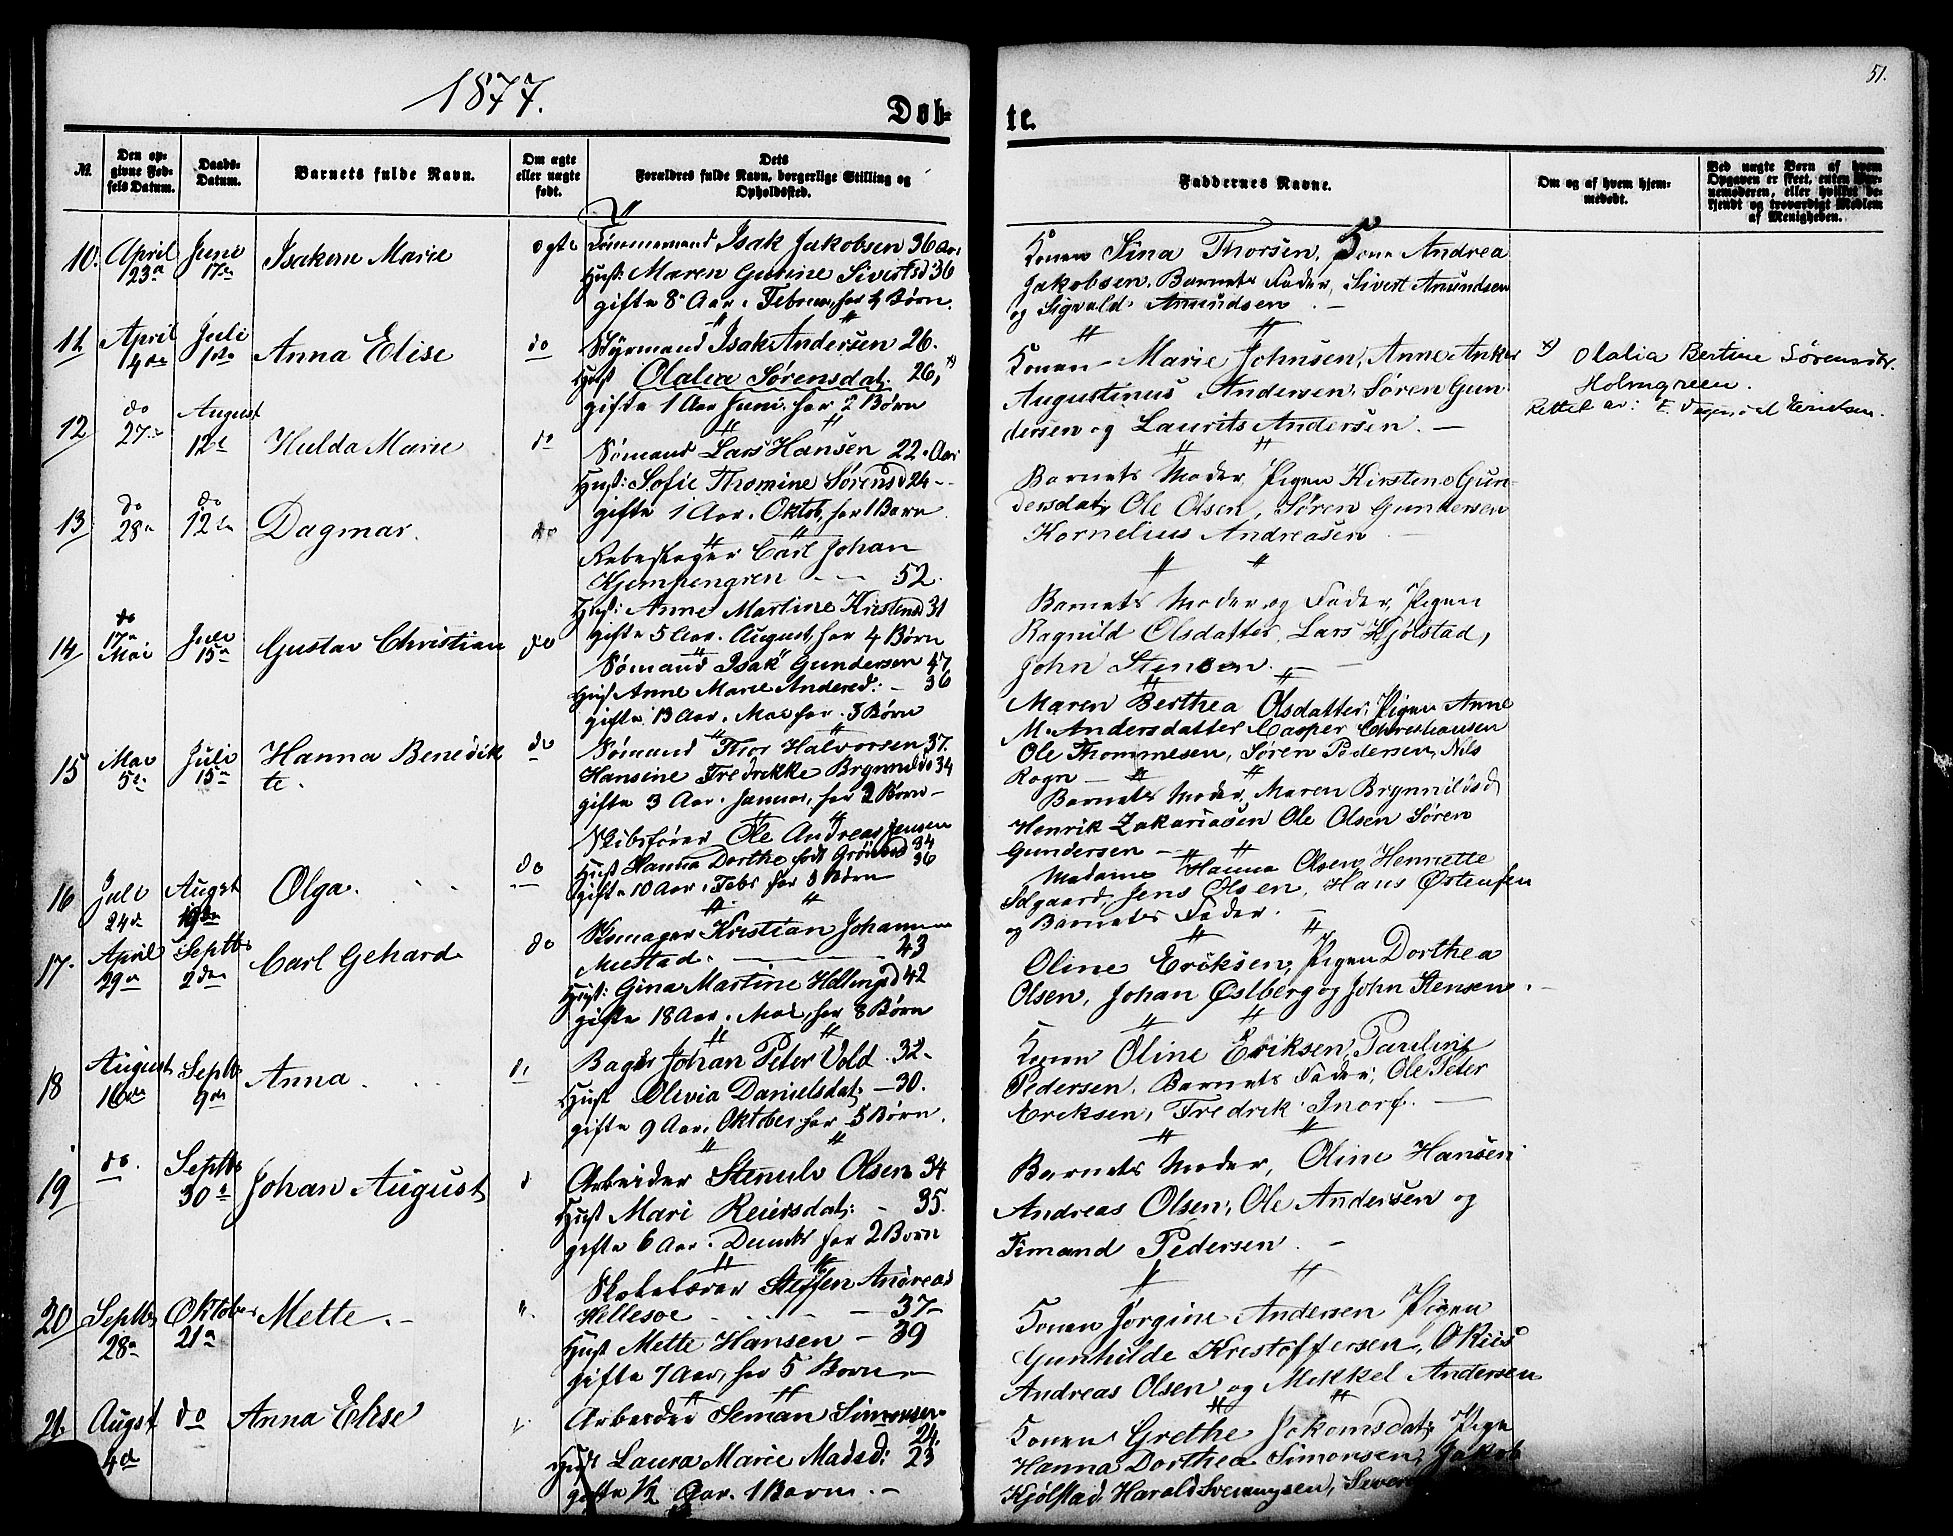 51.
1877.
Døb-
te.
№
Den op-
givne Fød-
sels Datum.
Daabs-
Datum.
Barnets fulde Navn.
Om ægte
eller uægte
født.
Dets
Forældres fulde Navn, borgerlige Stilling og
Opholdssted.
Faddernes Navne.
Om og af hvem hjem-
medøbt.
Ved uægte Børn af hvem
Opgaven er skeet, enten Bar-
nemoderen, eller hvilket be-
kjendt og troværdigt Medlem
af Menigheden.
10. April 23de Juni 17de Isakine Marie ægte
Tømmermand Isak Jakobsen 36 Aar
Hust: Maren Gurine Sivertsd 36
gifte 8 Aar i Februar, har 4 Børn.
Konen Sina Thorsen, Kone Andrea
Jakobsen, Barnets Fader, Sivert Amundsen
og Sigvald Amundsen
11 April 14de Juli 1ste Anna Elise do
Styrmand Isak Andersen 26.
Hust Olalia Sørensdat. 26, x)
gifte 1 Aar Juni, har 2 Børn
Konen Marie Johnsen, Anne Anker
Augustinus Andersen, Søren Gun-
dersen og Laurits Andersen. —
x) Olalia Bertine Sørensdtr.
Holmgreen.
Rettet av:
12 do 27de August 12te Hulda Marie do
Sømand Lars Hansen 22 Aar
Hust: Sofie Thomine Sørensd 24 -
gifte 1 Aar i Oktob, har 1 Barn
Barnets Moder, Pigen Kirstine Gun-
dersdat; Ole Olsen, Søren Gundersen
Kornelius Andreasen
13 do 28de do 12te Dagmar. do
Rebeslager Carl Johan
Kjempengren — 52.
Hust: Anne Martine Kirstensd 31
gifte 5 Aar. August, har 4 Børn
Barnets Moder og Fader, Pigen
Ragnild Olsdatter, Lars Kjølstad,
John Stensen. —
14 do 17de Mai Juli 15de Gustav Christian do
Sømand Isak Gundersen 47
Hust Anne Marie Andersd: - 36
gifte 13 Aar. Mai har 5 Børn
Maren Berthea Olsdatter, Pigen Anne
M. Andersdatter Casper Christiansen
Ole Thommesen, Søren Pedersen, Nils
Rogn —
15 Mai 5te Juli 15de Hanna Benedik
te. do
Sømand Thor Halvorsen 37.
Hansine Fredrikke Brynnildsd 34
gifte 3 Aar. Januar, har 2 Børn -
Barnets Moder, Maren Brynnildsd
Henrik Zakariasen Ole Olsen Søren
Gundersen —
16 Juli 24de Augst Olga. do
Skibsfører Ole Andreas Jensen
Hust Hanna Dorthe født 34
36
gifte 10 Aar i Febr har 8 Børn
Madame Hanna Olsen, Henriette
Jens Olsen, Hans Østensen
og Barnets Fader.
17. April 29de Septbr 2den Carl Gehard do
Skomager Kristian Johannesen
Mustad. — 43
Hust: Gina Martine Hellingsd 42
gifte 18 Aar. Mai, har 8 Børn
Oline Eriksen, Pigen Dorthea
Olsen, Johan Østberg og John Stensen. -
18 August 16de Septbr 9de Anna do
Bager Johan Peter Vold. 32-
Hust Olivia Danielsdat; —30.
gifte 9 Aar, Oktober har 5 Børn.
Konen Oline Eriksen, Pauline
Pedersen, Barnets Fader, Ole Peter
Eriksen, Fredrik
19 do. Septbr 30te Johan August d
Arbeider Stenulv Olsen 34
Hust Mari Reiersdat; - 35.
gifte 6 Aar. Decembr har 2 Børn
Barnets Moder, Oline Hansen
Andreas Olsen, Ole Andersen og
Simand Pedersen. -
20 Septbr 28de Oktober 21de Mette. - "
Skolelærer Steffen Andreas
Hellesoe — 37-
Hust Mette Hansen — 39
gifte 7 Aar, har 5 Børn -
Konen Jørgine Andersen Pigen
Gunhilde Kristoffersen,
Andreas Olsen og Mikkel Andersen
21. Augst 4de do Anna Elise
Arbeider Seman Simonsen
24.
Hust Laura Marie Madsd: 23
gifte ½ Aar. 1 Barn. -
Konen Grethe Jokomsdat; Pigen
Hanna Dorthea Simonsen, Jakob
Kjølstad, Harald